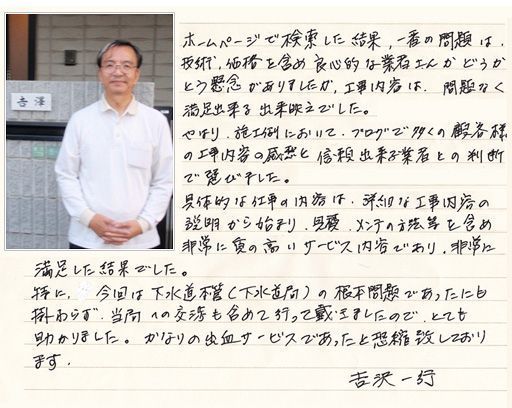 吉澤
ホームページで検索した結果、一番の問題は、
技術、価格を含め良心的な業者さんかどうか
とう懸念がありましたが、工事内容は、問題なく
満足出来る出来映えでした。
やはり、施工例において、ブログで多くの顧客様
の工事内容の感想と信頼出来る業者との判断
で選びました。
具体的な仕事の内容は、詳細な工事内容の
説明から始まり、メンテの方法等を含め
非常に質の高いサービス内容であり、非常に
満足した結果でした。
特に、今回は下水道本管(下水道局)の根本問題であったにも
掛わらず、当局への交渉も含めて行って戴きましたので、とても
助かりました。かなりの出血サービスであったと恐縮致しており
ます。
吉沢一行